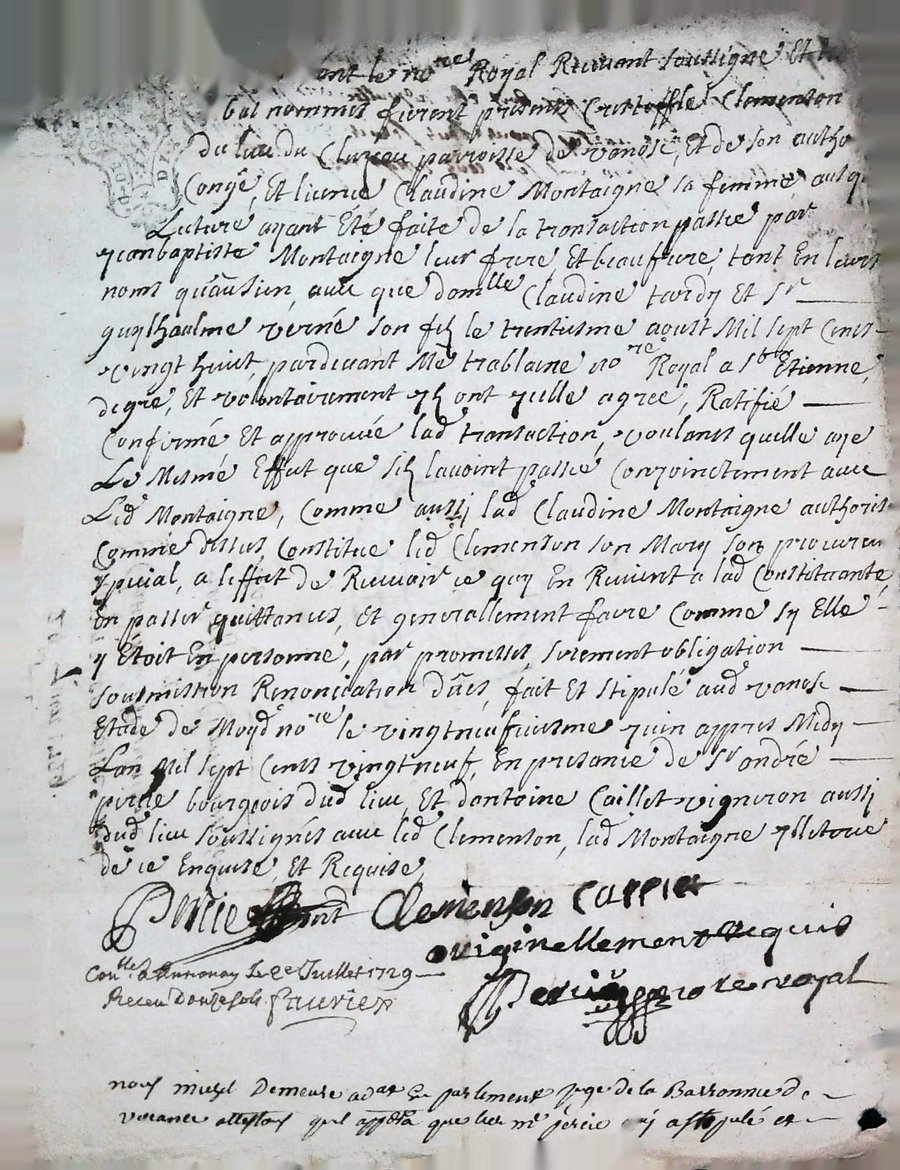 ant le no.re Royal Recevant soussigne Et
bas nommes furent presents Cristoffle Clemenson
du lieu du Cluzeau parroisse de vanosc, Et de son autho
Congé, Et licence Claudine Montaigne sa femme ausq
Lecture ayant Été faite de la transaction passée par
jeanbaptiste Montaigne leur frere, Et beaufrere, tant En leurs
noms qu'au sien, avec que dam.lle Claudine tardy Et Sr
guylhaulme verné son fils le trentiesme aoust Mil sept Cens
vingt huit, pardevant Me trablaine no.re Royal a St Etienne,
de gré, Et volontairement ils ont icelle agreé, Ratifié
Confirmé Et approuvée lad transaction, voulants quelle aye
Le Mesme Effect que sils lavoint passée Conjoinctement avec
Led Montaigne, Comme aussi lad Claudine Montaigne authoris
Comme dessus Constitue led Clemenson son Mary son procureu
special, a leffect de Recevoir ce quy En Revient a lad Constituante,
En passer quittances, Et generallement faire Comme sy Elle
y Étoit En personne, par promesses, serement obligation
soubmission Renonciation d'ües, fait Et stipulé aud vanosc
Etude de Moyd no.re le vingtneufviesme juin appres Midy
Lan Mil sept Cens vingtneuf, En presance de Sr andré
percie bourgeois dud lieu, Et dantoine Caillet vigneron aussi
dud lieu soussignés avec led Clemenson, lad Montaigne illetrée
de ce Enquise, Et Requise
Percie Clemenson
originellement requis
Con.lle a Annonay Le 2e Juillet 1729
Receu Douze sols faurier
Percie no.re royal
nous Demeure adat En parlement juge de la Baronnie de
vocance attestons quil appdra que led me percie qui a stipulé et